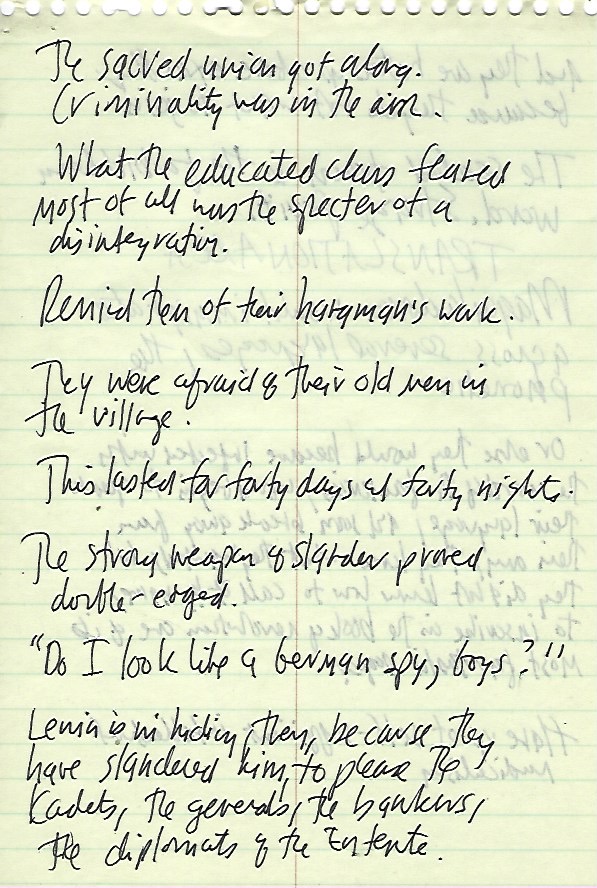 The sacred union got along.
Criminality was in the air.
What the educated class feared
most of all was the specter of a
disintegration.
Remind them of their hangman's work.
They were afraid of their old men in
the village.
This lasted for forty days and forty nights.
The strong weapon of slander proved
double-edged.
"Do I look like a German spy, boys?"
Lenin is in hiding, then, because they
have slandered him, to please the
Kadets, the generals, the bankers,
the diplomats of the Entente.